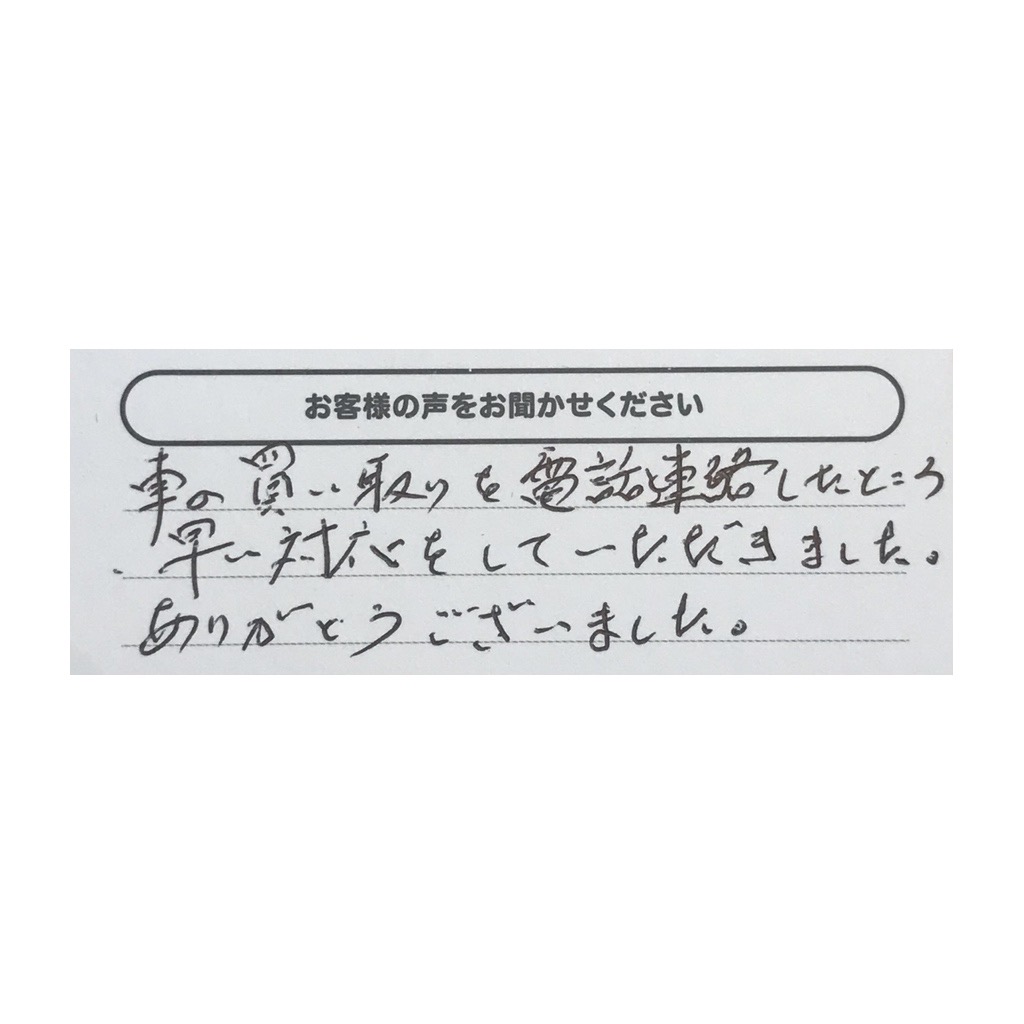 お客様の声をお聞かせください
車の買い取りを電話連絡したところ
早い対応をしていただきました。
ありがとうございました。